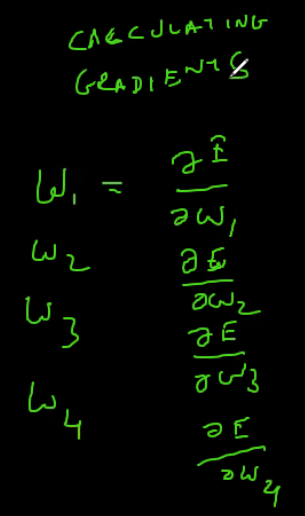 CALCULATING
GRADIENTS
W₁ = ∂E/∂W₁
W₂ ∂E/∂W₂
W₃ ∂E/∂W₃
W₄ ∂E/∂W₄